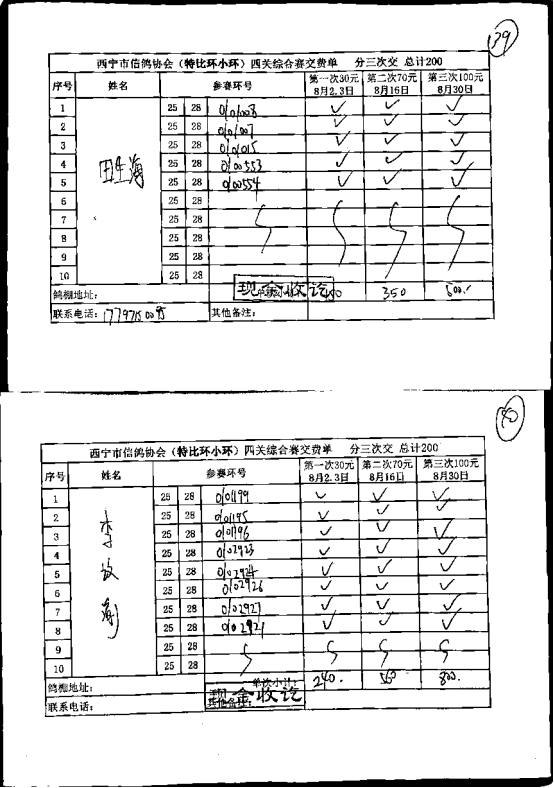 139
西宁市信鸽协会（特比环小环）四关综合赛交费单 分三次交 总计200
序号 姓名 参赛环号 第一次30元 8月2.3日 第二次70元 8月16日 第三次100元 8月30日
1 25 28 0101008 ✓ ✓ ✓
2 25 28 0101007 ✓ ✓ ✓
3 25 28 0101015 ✓ ✓ ✓
4 田生海 25 28 0100553 ✓ ✓ ✓
5 25 28 0100554 ✓ ✓ ✓
6 25 28
7 25 28
8 25 28
9 25 28
10 25 28
鸽棚地址： 现金收讫 350 500.
联系电话： 其他备注：
西宁市信鸽协会（特比环小环）四关综合赛交费单 分三次交 总计200
序号 姓名 参赛环号 第一次30元 8月2.3日 第二次70元 8月16日 第三次100元 8月30日
1 25 28 0101199 ✓ ✓ ✓
2 25 28 0101195 ✓ ✓ ✓
3 25 28 0101196 ✓ ✓ ✓
4 25 28 0102923 ✓ ✓ ✓
5 25 28 0102924 ✓ ✓ ✓
6 25 28 0102926 ✓ ✓ ✓
7 25 28 0102927 ✓ ✓ ✓
8 25 28 0102921 ✓ ✓ ✓
9 25 28
10 25 28
鸽棚地址： 单次小计： 240. 560 800.
联系电话： 现金收讫 其他备注：